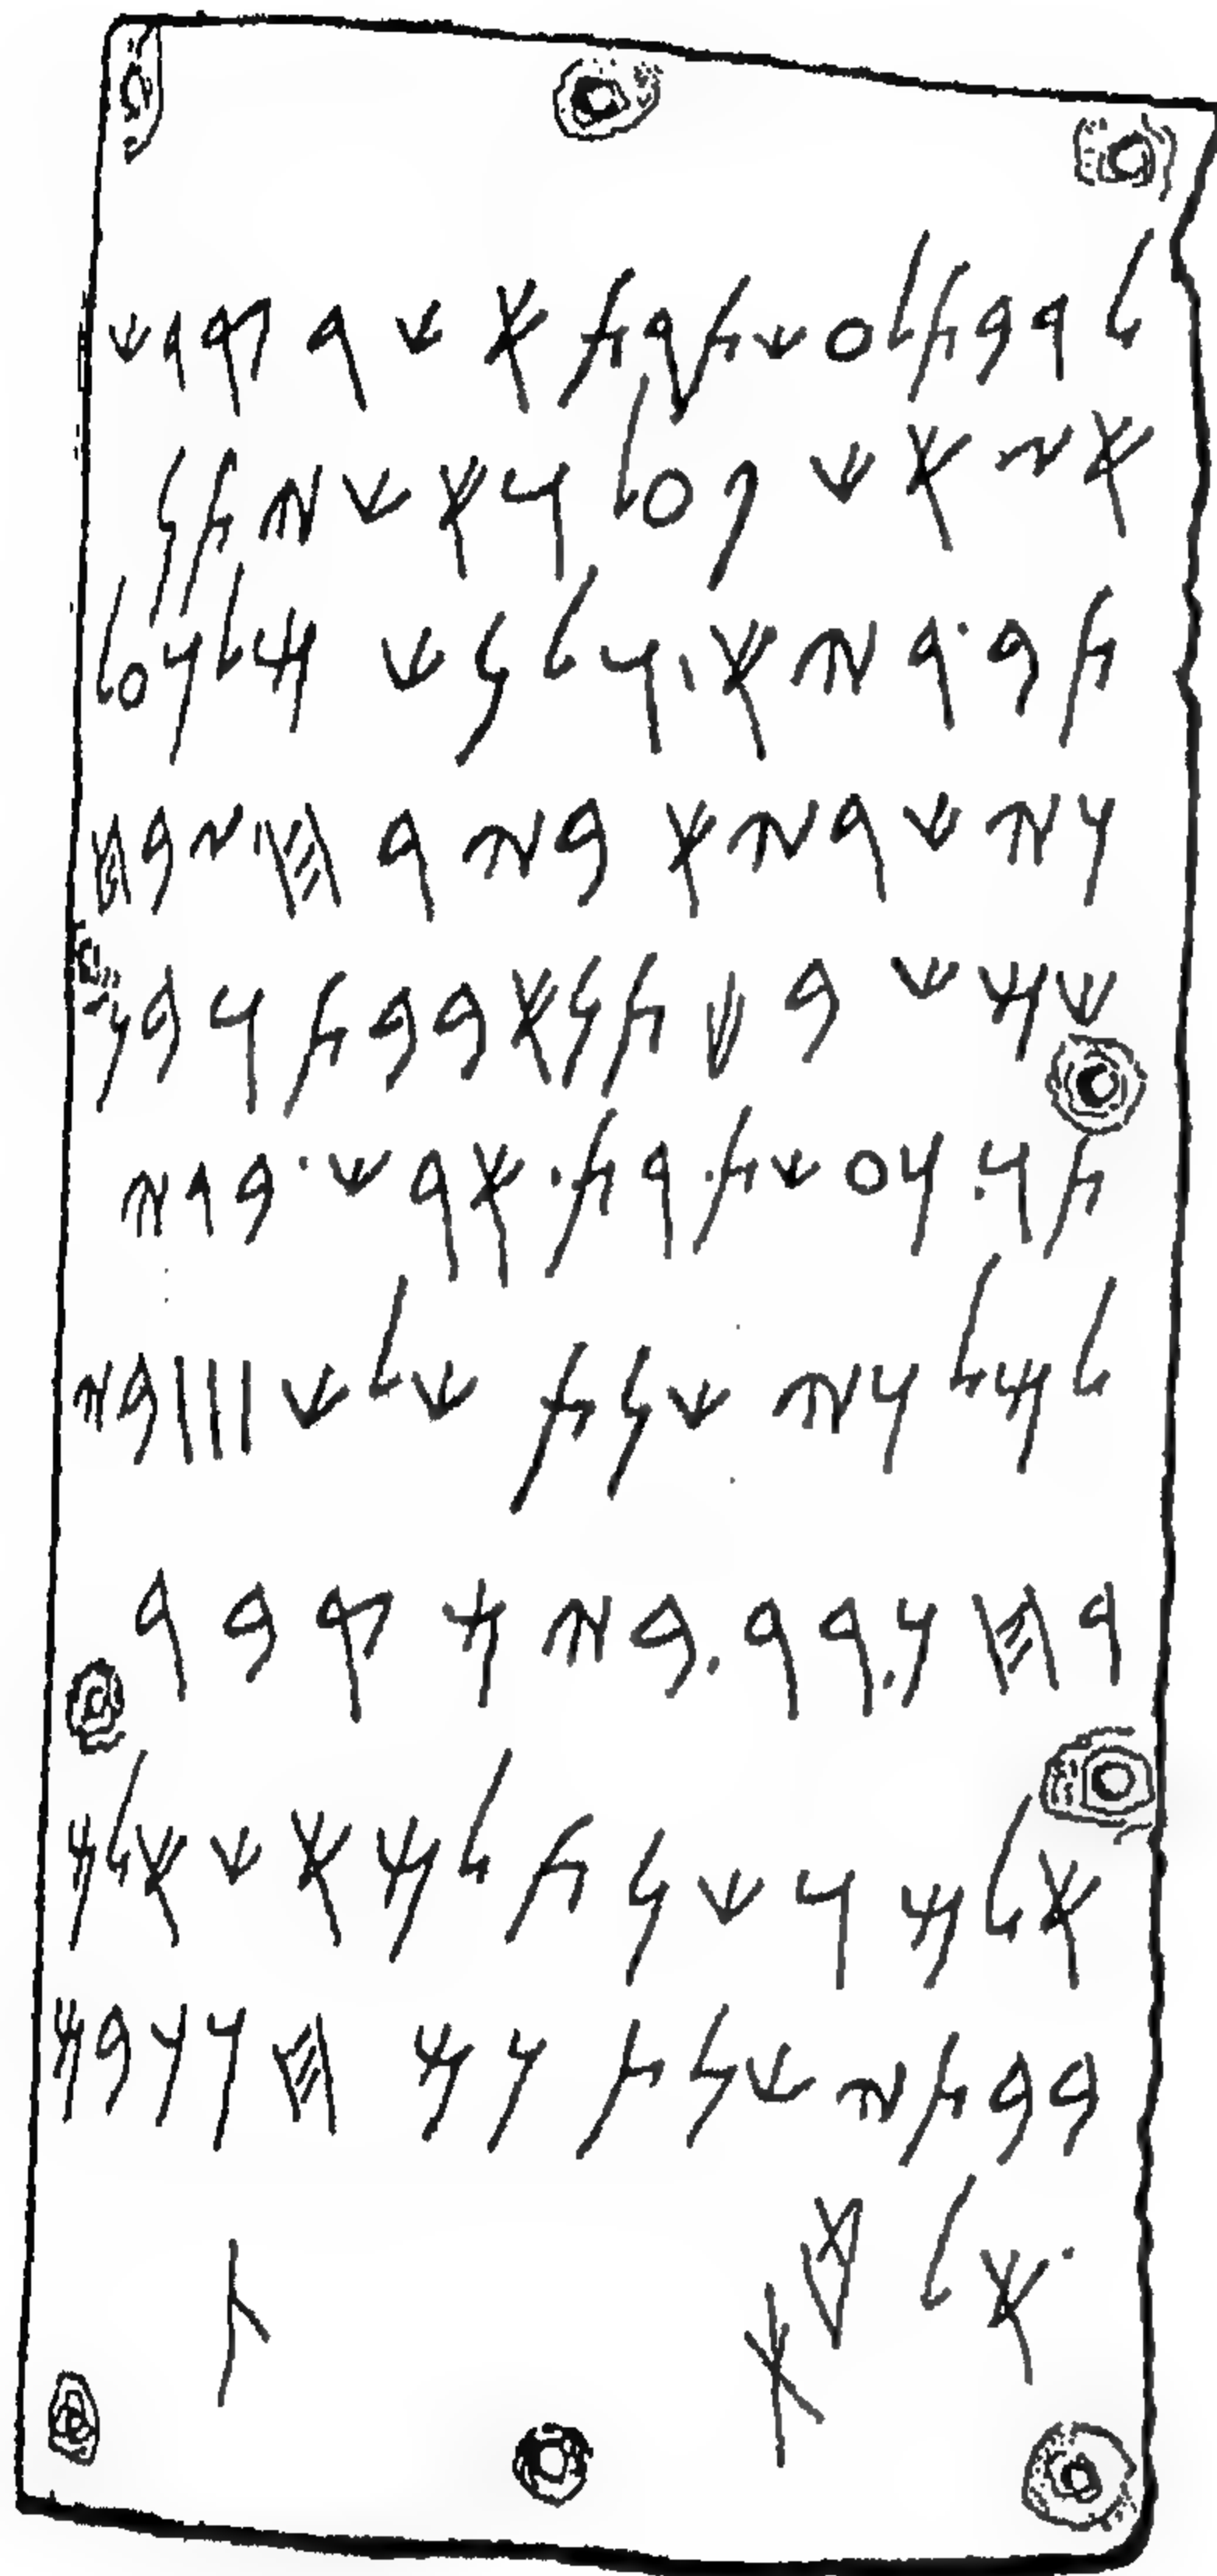 𐤋𐤓𐤁𐤕𐤋𐤏𐤔𐤕𐤓𐤕 𐤀𐤔𐤓 𐤒𐤃𐤔
𐤀𐤆 𐤀𐤔 𐤐𐤏𐤋 𐤅𐤀𐤔 𐤉𐤕𐤍
𐤕𐤁𐤓𐤉𐤀 𐤅𐤋𐤍𐤔 𐤌𐤋𐤊𐤏𐤋
𐤊𐤉𐤔𐤓𐤉𐤀 𐤁𐤉𐤓𐤇 𐤆𐤁𐤇
𐤔𐤌𐤔 𐤁𐤌𐤕𐤍𐤀 𐤁𐤁𐤕 𐤅𐤁𐤍
𐤕𐤅.𐤊𐤏𐤔𐤕.𐤓𐤕.𐤀𐤓𐤔.𐤁𐤃𐤉
𐤋𐤌𐤋𐤊𐤉 𐤔𐤍𐤕 𐤔𐤋𐤔 𐤖𐤖𐤖 𐤁𐤉
𐤓𐤇 𐤊.𐤓𐤓.𐤁𐤉𐤌 𐤒𐤁𐤓
𐤀𐤋𐤌 𐤅𐤔𐤍𐤕 𐤋𐤌𐤀𐤔 𐤀𐤋𐤌
𐤁𐤁𐤕𐤉 𐤔𐤍𐤕 𐤊𐤌 𐤄𐤊𐤊𐤁𐤌
𐤀𐤋